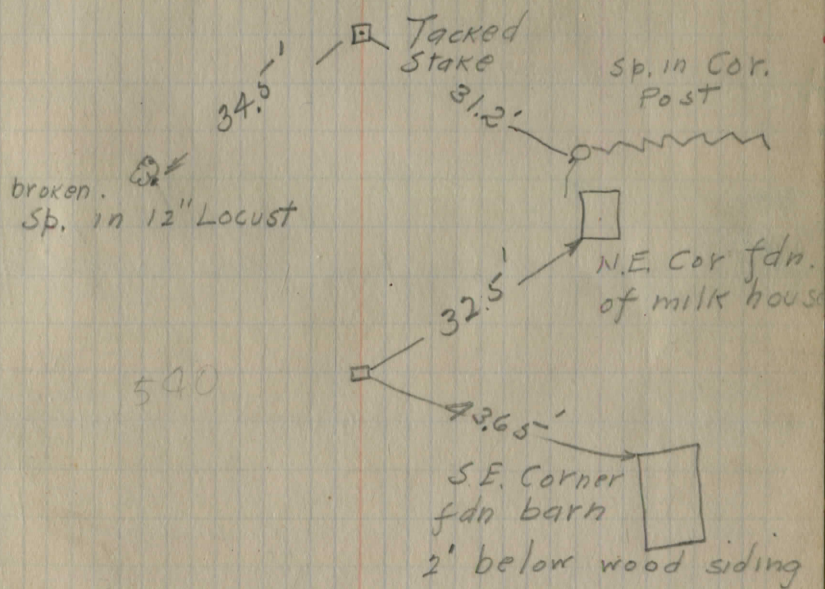 Tacked
Stake
34.5'
31.2'
Sp. in Cor.
Post
broken.
Sp. in 12" Locust
N.E. Cor fdn.
of milk house
32.5'
540
43.65'
S.E. Corner
fdn barn
2' below wood siding